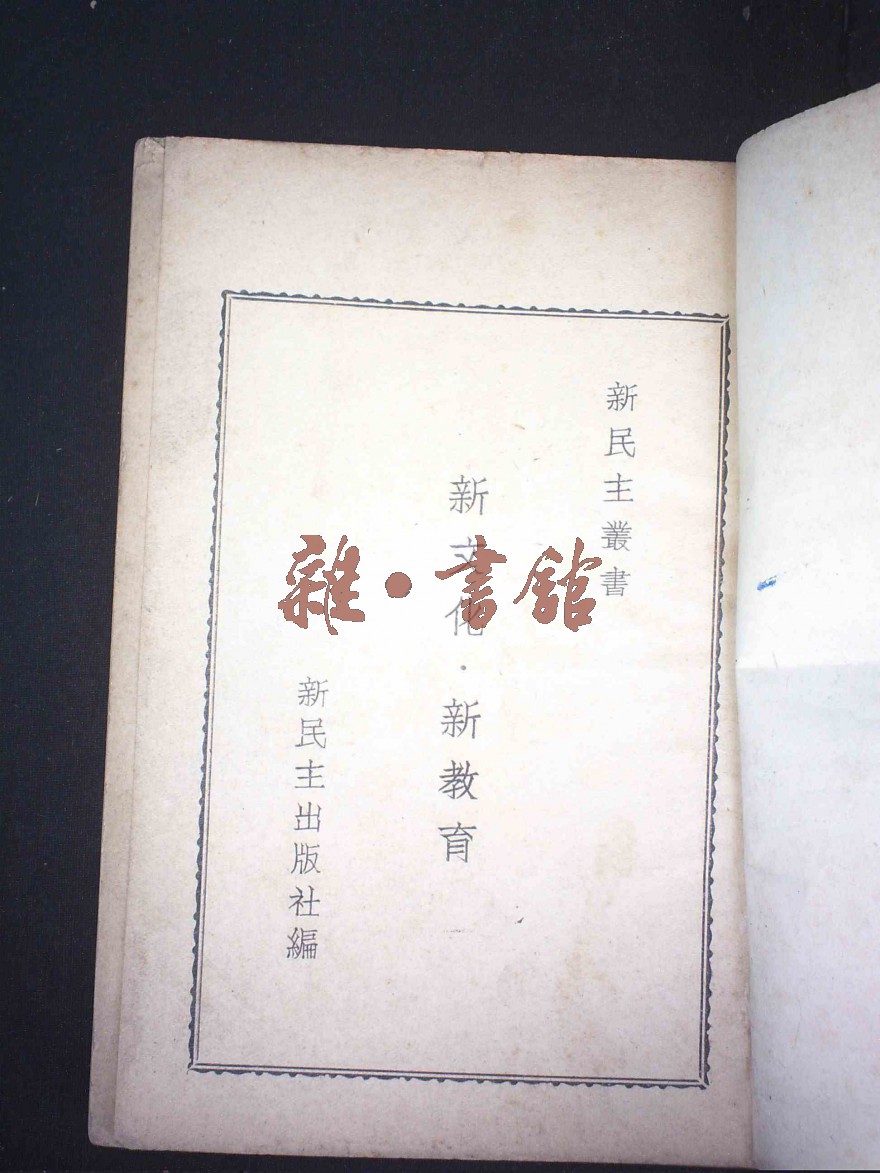 新民主叢書
新文化·新教育
新民主出版社編
雜·書館